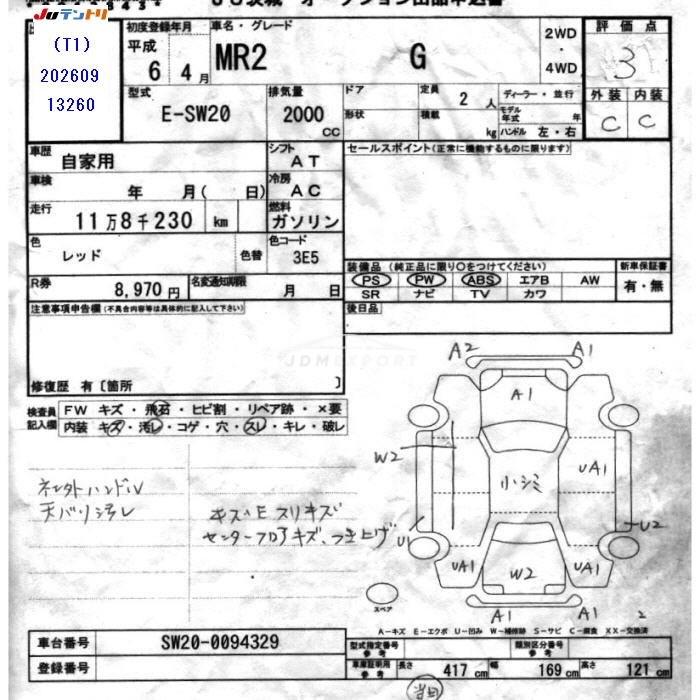 JUテントリ
JU茨城 オークション出品申込書
(T1)
202609
13260
初度登録年月
平成
6 年 4 月
車名・グレード
MR2 G
2WD
・
4WD
評価点
3
外装 内装
C C
型式
E-SW20
排気量
2000
CC
ドア
定員
2 人
ディーラー・並行
モデル年式 年
形状
積載
kg
ハンドル 左・右
車歴
自家用
シフト
AT
セールスポイント(正常に機能するものに限ります)
車検
年 月( 日)
冷房
AC
走行
11万8千230 km
燃料
ガソリン
色
レッド
色替
色コード
3E5
装備品(純正品に限り○をつけてください)
新車保証書
PS PW ABS エアB AW
有・無
SR ナビ TV カワ
R券
8,970 円
名変通知期限
月 日
後日品
注意事項申告欄(不具合内容等は具体的に記入して下さい)
JDMEXPORT
修復歴 有〔箇所 〕
検査員
記入欄
FW キズ・飛石・ヒビ割・リペア跡・×要
内装 キズ・汚レ・コゲ・穴・スレ・キレ・破レ
天バリ汚レ
キズ、E スリキズ
センターフロアキズ、つき上げ
A2 A1
A1
W2
小シミ
UA1
U1
U2
UA1
W2
UA1
A1
A1
スペア
2
A-キズ E-エクボ U-凹み W-補修跡 S-サビ C-腐食 XX-交換済
車台番号
SW20-0094329
型式指定番号
参考
類別区分番号
参考
登録番号
車庫証明用
参考
長さ 417 cm 幅 169 cm 高さ 121 cm